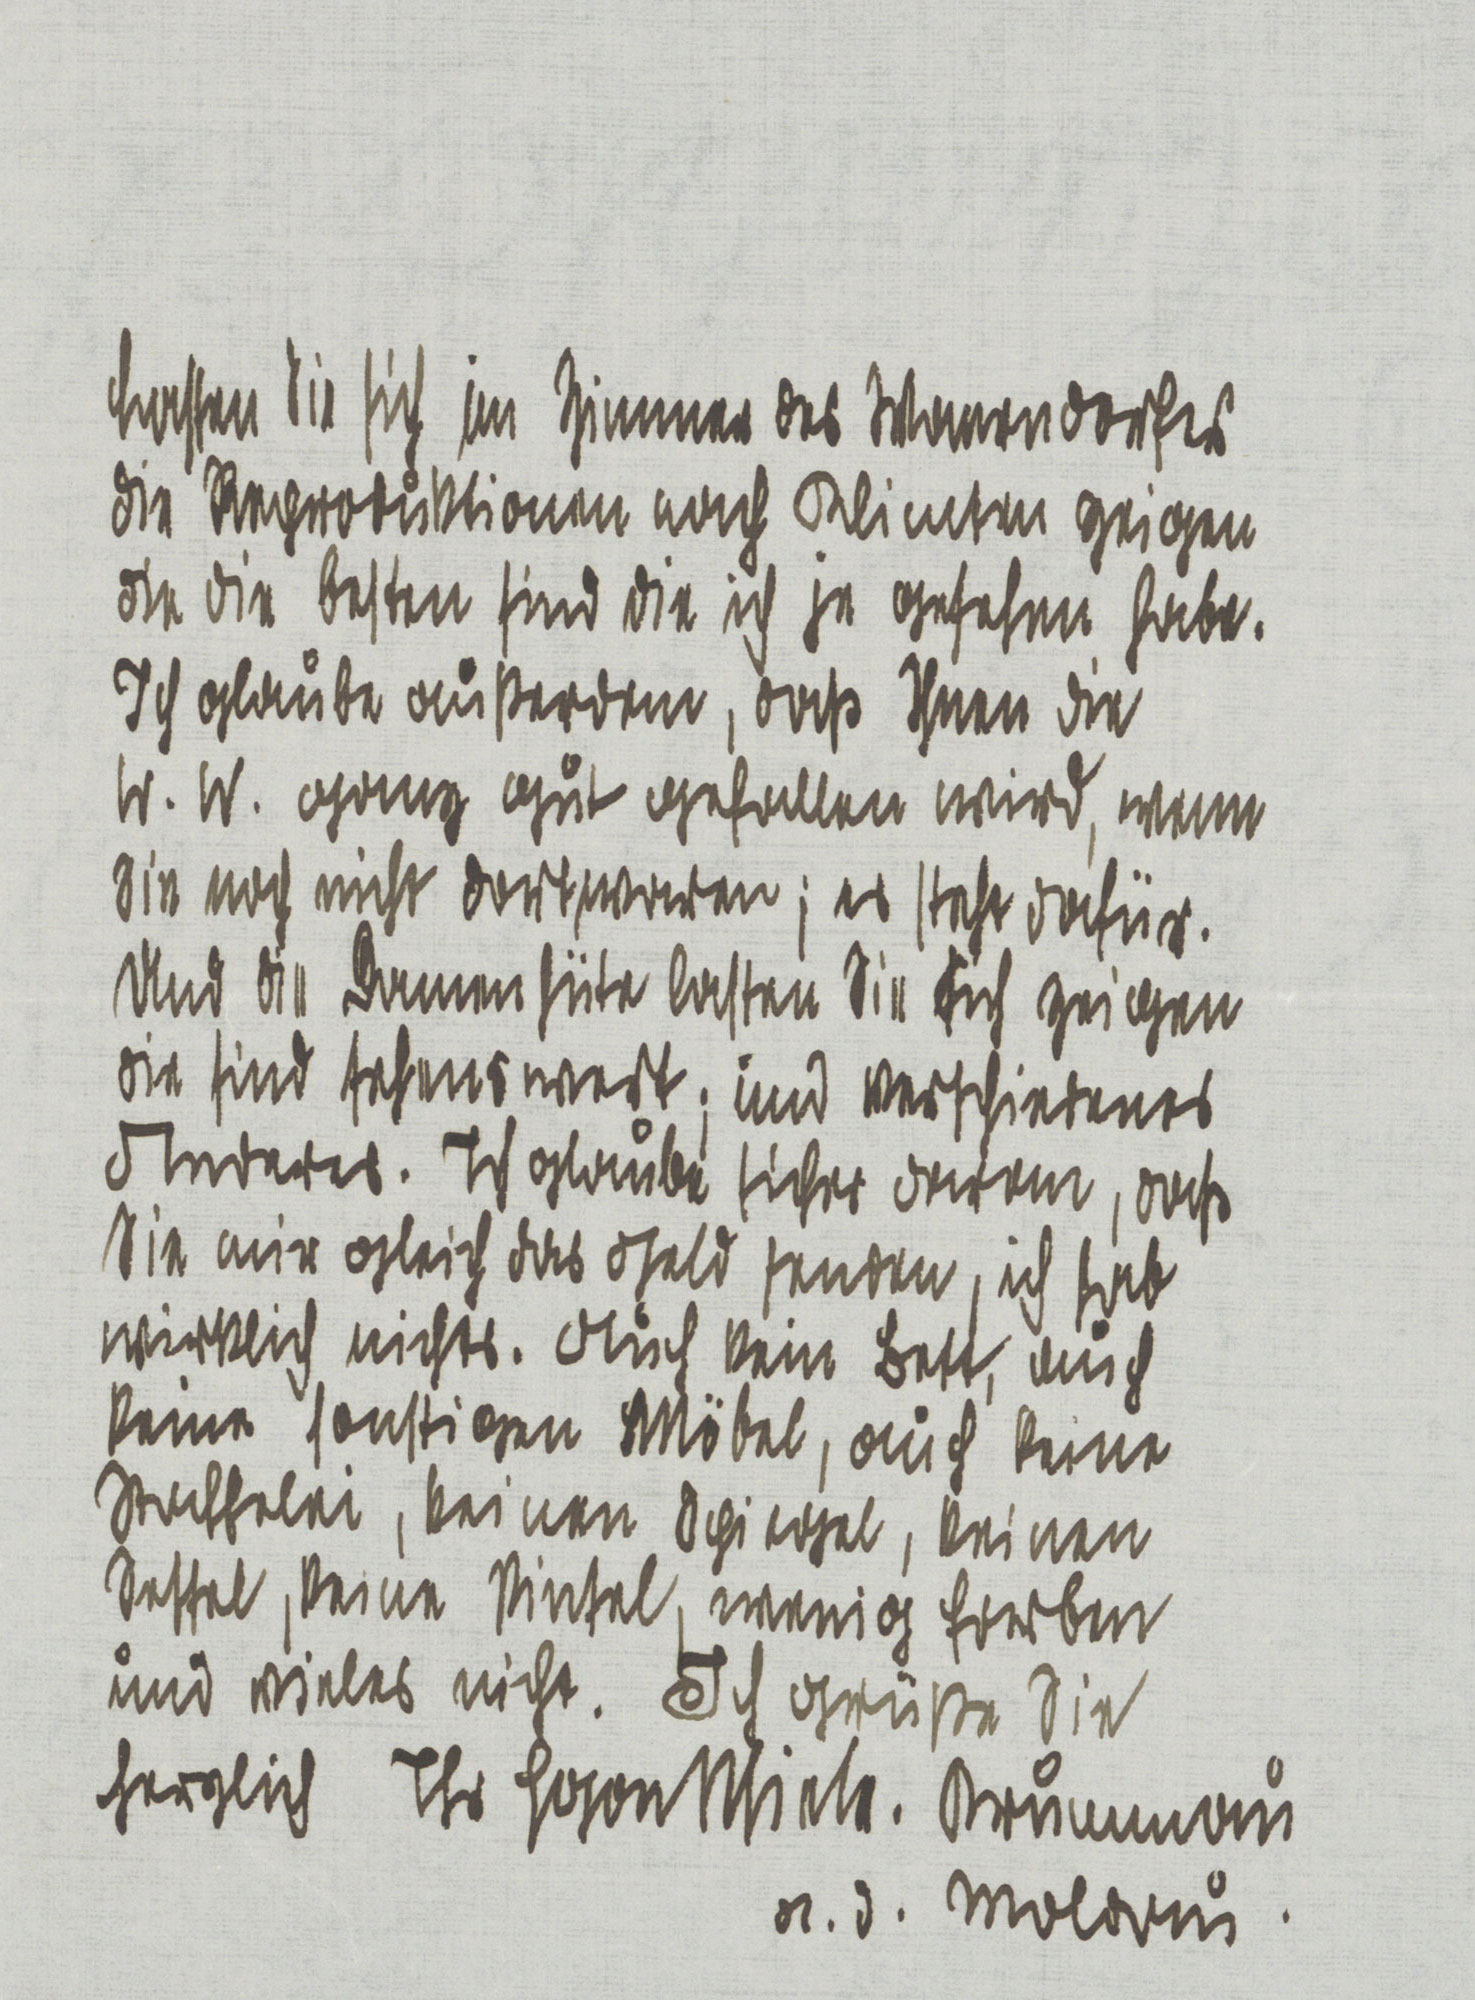 Lassen Sie sich im Zimmer des Waerndorfer
die Reproduktionen nach Klimten zeigen
die die besten sind die ich je gesehen habe.
Ich glaube außerdem, daß Ihnen die
W. W. ganz gut gefallen wird, wenn
Sie noch nicht dort waren; es steht dafür.
Und die Damenhüte lassen Sie sich zeigen
die sind sehenswert; und verschiedenes
Anderes. Ich glaube sicher daran, daß
Sie mir gleich das Geld senden, ich hab
wirklich nichts. Auch kein Bett, auch
keine sonstigen Möbel, auch keine
Staffelei, keinen Spiegel, keinen
Sessel, keine Pinsel, wenig Farben
und vieles nicht. Ich grüße Sie
herzlich Ihr Egon Schiele. Krummau
a. d. Moldau.